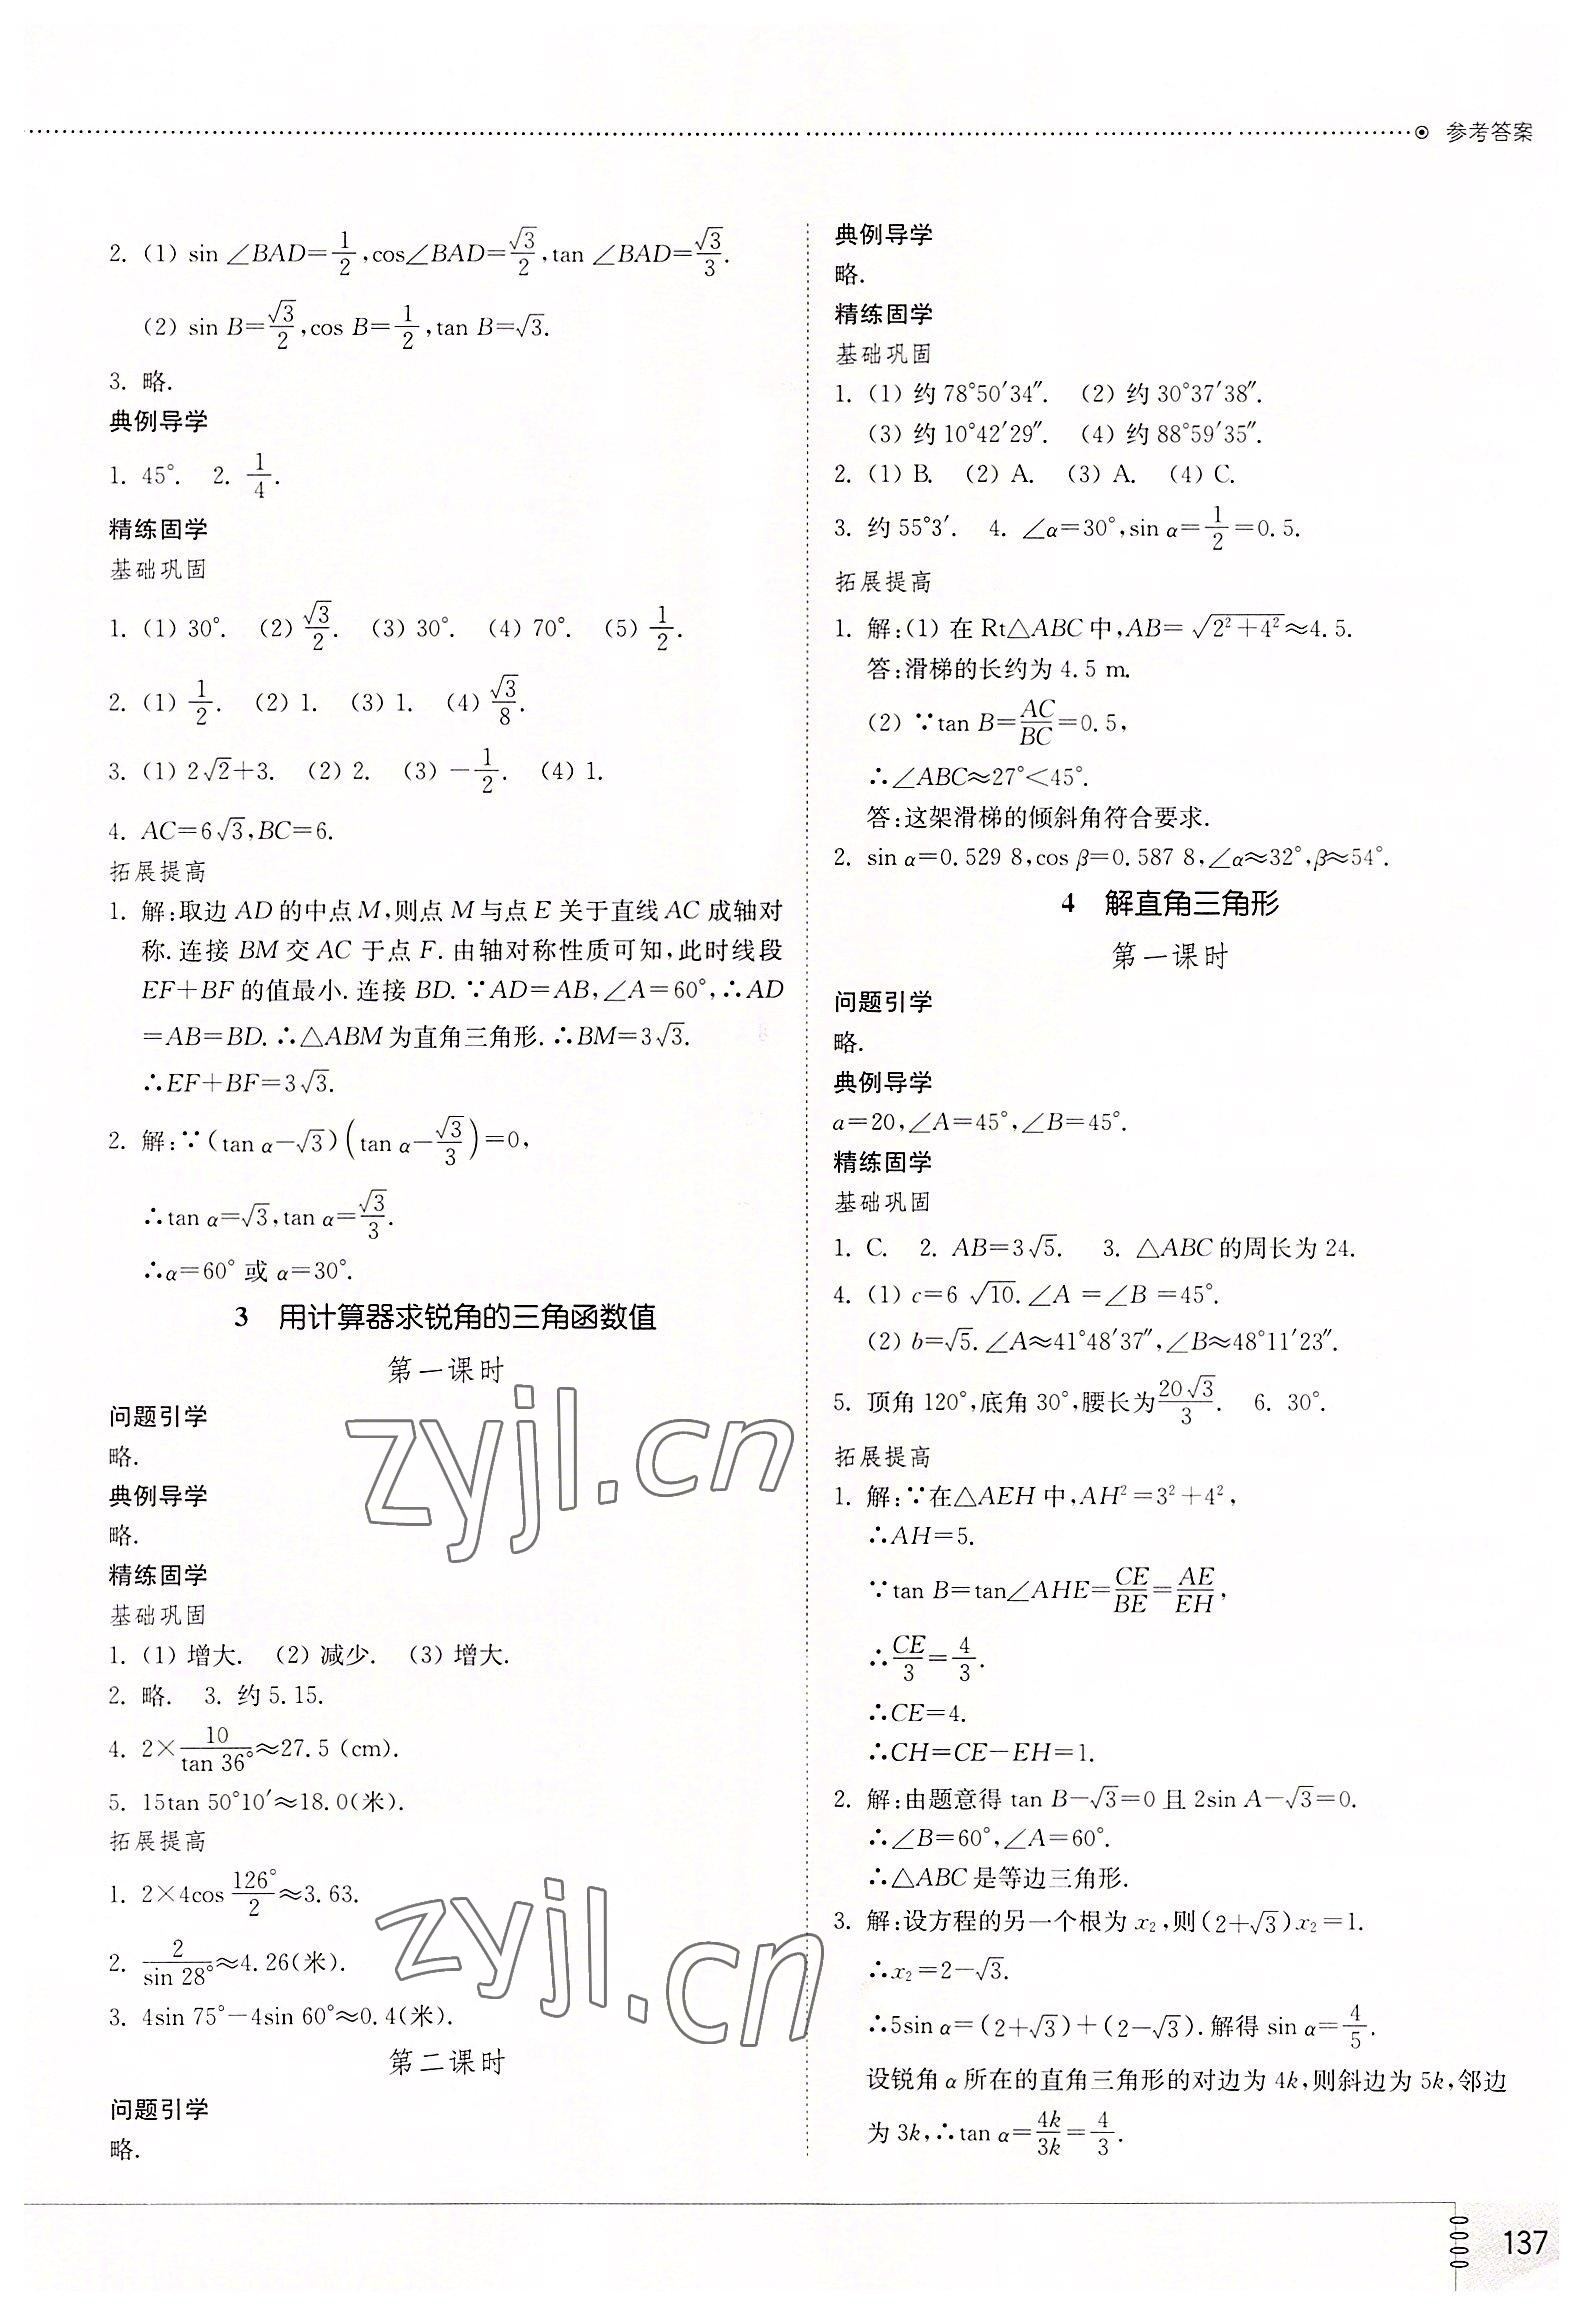 参考答案
2. (1) sin ∠BAD=1/2,cos∠BAD=√3/2,tan ∠BAD=√3/3.
(2) sin B=√3/2,cos B=1/2,tan B=√3.
3. 略.
典例导学
1. 45°. 2. 1/4.
精练固学
基础巩固
1. (1) 30°. (2) √3/2. (3) 30°. (4) 70°. (5) 1/2.
2. (1) 1/2. (2) 1. (3) 1. (4) √3/8.
3. (1) 2√2+3. (2) 2. (3) -1/2. (4) 1.
4. AC=6√3,BC=6.
拓展提高
1. 解:取边 AD 的中点 M,则点 M 与点 E 关于直线 AC 成轴对
称.连接 BM 交 AC 于点 F.由轴对称性质可知,此时线段
EF+BF 的值最小.连接 BD.∵AD=AB,∠A=60°,∴AD
=AB=BD.∴△ABM 为直角三角形.∴BM=3√3.
∴EF+BF=3√3.
2. 解:∵(tan α-√3)(tan α-√3/3)=0,
∴tan α=√3,tan α=√3/3.
∴α=60° 或 α=30°.
3 用计算器求锐角的三角函数值
第一课时
问题引学
略.
典例导学
略.
精练固学
基础巩固
1. (1) 增大. (2) 减少. (3) 增大.
2. 略. 3. 约 5.15.
4. 2×10/tan 36°≈27.5 (cm).
5. 15tan 50°10′≈18.0(米).
拓展提高
1. 2×4cos 126°/2≈3.63.
2. 2/sin 28°≈4.26(米).
3. 4sin 75°-4sin 60°≈0.4(米).
第二课时
问题引学
略.
典例导学
略.
精练固学
基础巩固
1. (1) 约 78°50′34″. (2) 约 30°37′38″.
(3) 约 10°42′29″. (4) 约 88°59′35″.
2. (1) B. (2) A. (3) A. (4) C.
3. 约 55°3′. 4. ∠α=30°,sin α=1/2=0.5.
拓展提高
1. 解:(1) 在 Rt△ABC 中,AB=√(2²+4²)≈4.5.
答:滑梯的长约为 4.5 m.
(2) ∵tan B=AC/BC=0.5,
∴∠ABC≈27°<45°.
答:这架滑梯的倾斜角符合要求.
2. sin α=0.529 8,cos β=0.587 8,∠α≈32°,β≈54°.
4 解直角三角形
第一课时
问题引学
略.
典例导学
a=20,∠A=45°,∠B=45°.
精练固学
基础巩固
1. C. 2. AB=3√5. 3. △ABC 的周长为 24.
4. (1) c=6 √10.∠A =∠B =45°.
(2) b=√5.∠A≈41°48′37″,∠B≈48°11′23″.
5. 顶角 120°,底角 30°,腰长为20√3/3. 6. 30°.
拓展提高
1. 解:∵在△AEH 中,AH²=3²+4²,
∴AH=5.
∵tan B=tan∠AHE=CE/BE=AE/EH,
∴CE/3=4/3.
∴CE=4.
∴CH=CE-EH=1.
2. 解:由题意得 tan B-√3=0 且 2sin A-√3=0.
∴∠B=60°,∠A=60°.
∴△ABC 是等边三角形.
3. 解:设方程的另一个根为 x₂,则(2+√3)x₂=1.
∴x₂=2-√3.
∴5sin α=(2+√3)+(2-√3).解得 sin α=4/5.
设锐角 α 所在的直角三角形的对边为 4k,则斜边为 5k,邻边
为 3k,∴tan α=4k/3k=4/3.
137
zyjl.cn
zyjl.cn